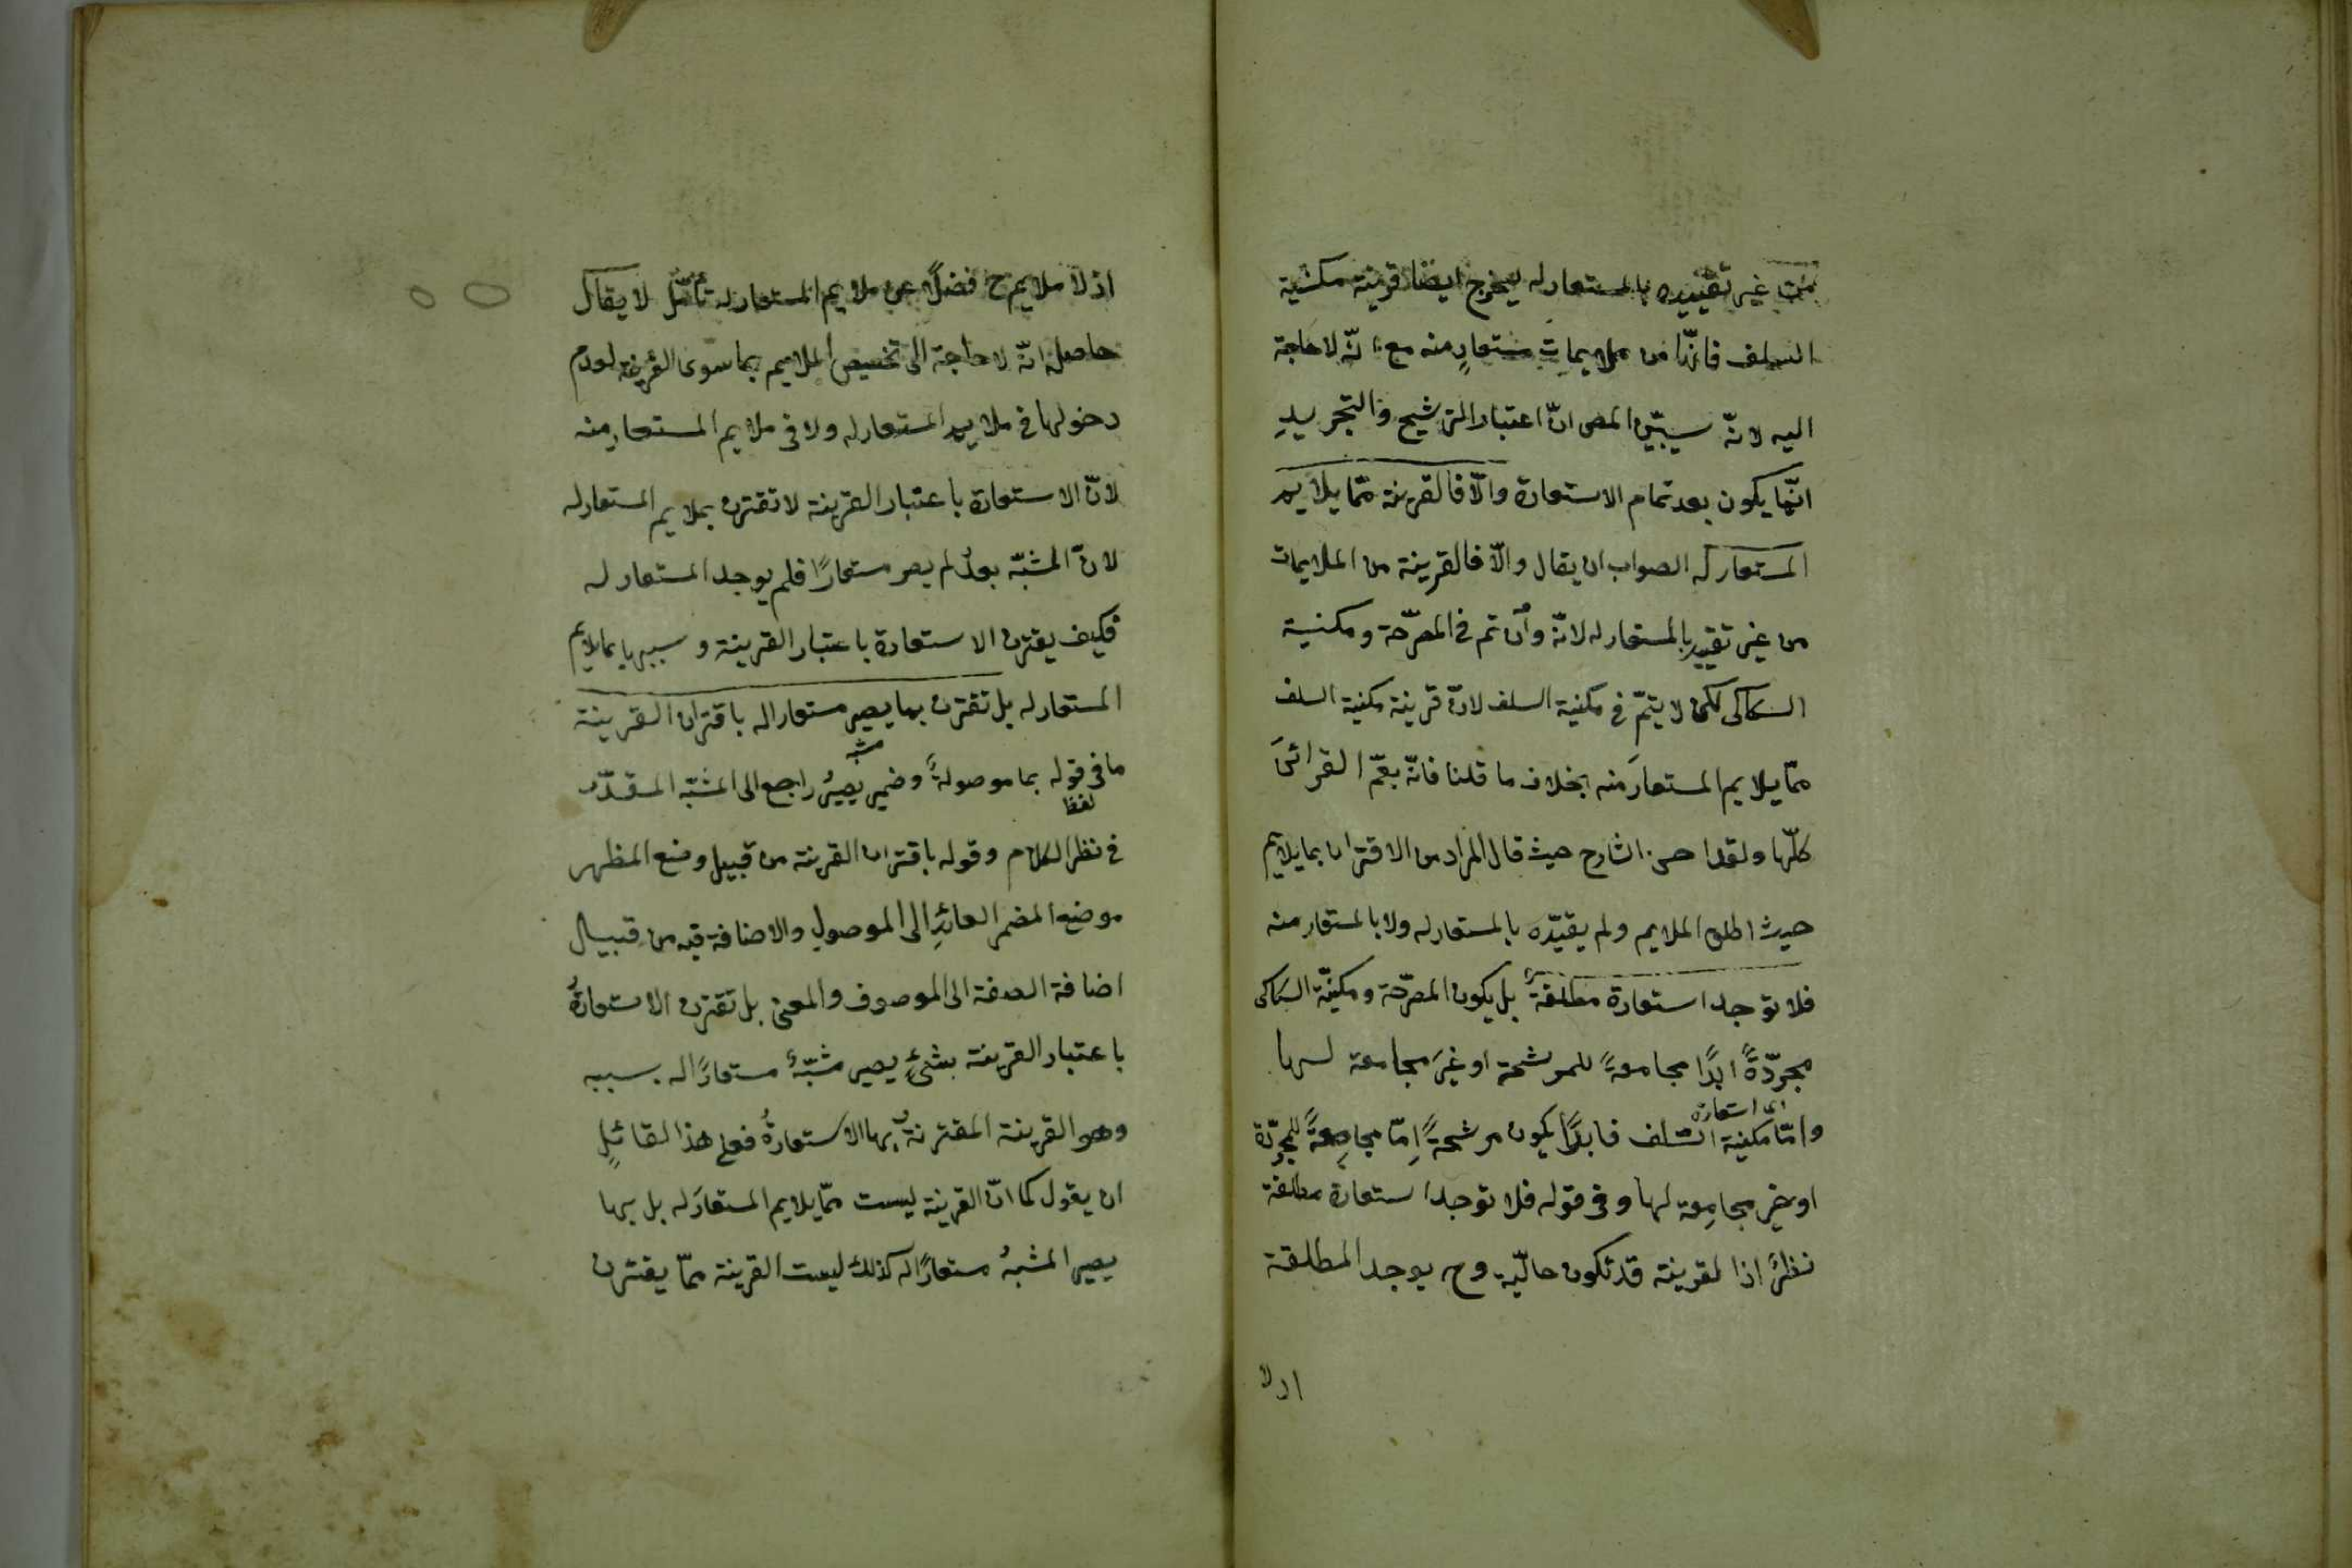 من غير تقييده بالمستعار له ليخرج ايضا قرينة مكنية
السلف فانّها من ملايمات مستعارٍ منه مع انّه لا حاجة
اليه لانّه سيبيّن المص انّ اعتبار الترشيح والتجريدِ
انّما يكون بعد تمام الاستعارة والّا فالقرينة ممّا يلايم
المستعار له الصواب ان يقال والّا فالقرينة من الملايمات
من غير تقييد بالمستعار له لانّه وان تم في المصرّحة ومكنية
السكاكى لكن لا يتمّ في مكنية السلف لانّ قرينة مكنية السلف
ممّا يلايم المستعارَ منه بخلاف ما قلنا فانّه يعمّ القرائنَ
كلّها ولقد احسن الشارح حيث قال المراد من الاقتران بما يلايم
حيث اطلق الملايم ولم يقيّده بالمستعار له ولا بالمستعار منه
فلا توجد استعارة مطلقةٌ بل يكون المصرّحة ومكنيّة السكاكى
مجرّدةً ابدًا مجامعةً للمرشحة او غيرَ مجامعة لها
اى استعارة
وامّا مكنية السّلف فابدًا يكون مرشحةً اِمّا مجامِعةً للمجرّدة
او غير مجامِعة لها وفى قوله فلا توجد استعارة مطلقة
نظرٌ اذ القرينة قد تكون حاليّة وح يوجد المطلقة
اذ لا
اذ لا ملايم ح فضلًا عن ملايم المستعار له تأمّل لا يقال
حاصله انّه لا حاجة الى تخصيص الملايم بما سوى القرينة لعدم
دخولها في ملايم المستعار له ولا فى ملايم المستعار منه
لانّ الاستعارة باعتبار القرينة لا تقترن بملايم المستعار له
لانّ المشبّه بعدُ لم يصر مستعارًا فلم يوجد المستعار له
فكيف يقترن الاستعارة باعتبار القرينة وسببها بما يلايم
المستعار له بل تقترن بما يصير مستعارا له باقتران القرينة
مشبه
ما فى قوله بما موصولةٌ وضمير يصيرُ راجع الى المشبّه المقدّم
لفظ
في نظر الكلام وقوله باقتران القرينة من قبيل وضع المظهر
موضع المضمر العائدِ الى الموصولِ والاضافة فيه من قبيل
اضافة الصفة الى الموصوف والمعنى بل تقترن الاستعارةُ
باعتبار القرينة بشئٍ يصير مشبّهٌ مستعارًا له بسببه
وهو القرينة المقترنةُ بها الاستعارةُ فعلى هذا لقائلٍ
ان يقول كما انّ القرينة ليست ممّا يلايم المستعارَ له بل بها
يصير المشبهُ مستعارًا له كذلك ليست القرينة ممّا يقترن